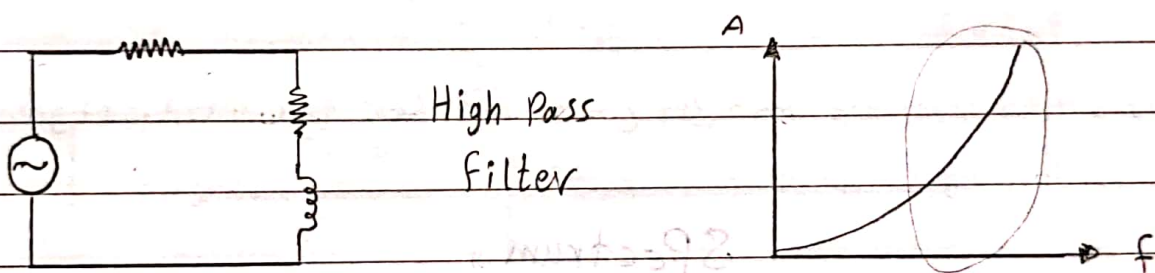 A
High Pass
filter
f